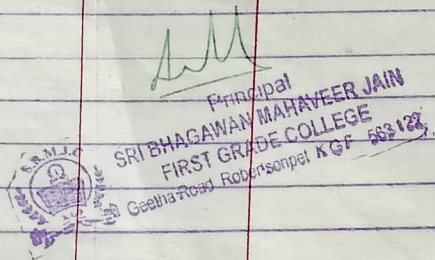 Principal
SRI BHAGAWAN MAHAVEER JAIN
FIRST GRADE COLLEGE
Geetha Road Robertsonpet KGF 563122